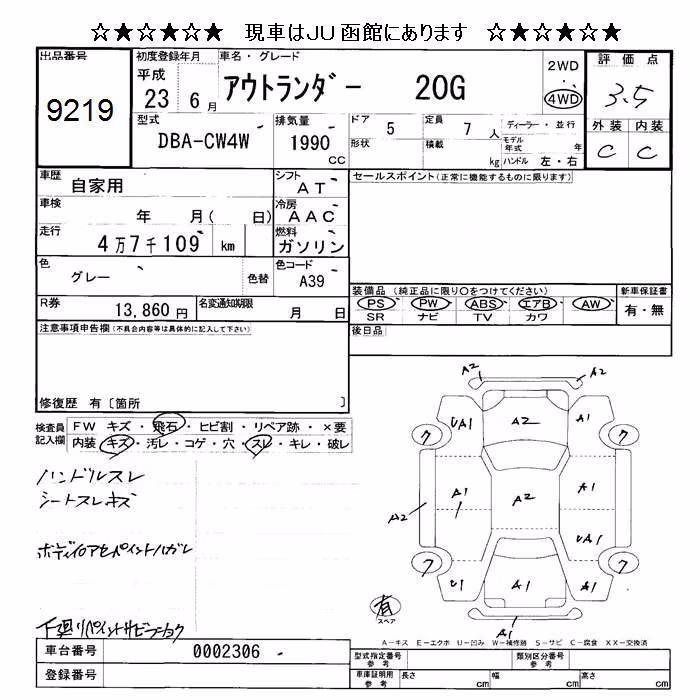 ☆★☆★☆★ 現車はJU函館にあります ☆★☆★☆★
出品番号
9219
初度登録年月
平成
23 6 月
車名・グレード
アウトランダー 20G
2WD
4WD
評価点
3.5
外装 内装
C C
型式
DBA-CW4W
排気量
1990
CC
ドア 5
定員 7 人
形状
積載 kg
ディーラー・並行
モデル年式 年
ハンドル 左・右
車歴
自家用
シフト
AT
車検
年 月( 日)
冷房
AAC
走行
4万7千109 km
燃料
ガソリン
色
グレー
色替
色コード
A39
R券
13,860円
名変通知期限
月 日
セールスポイント(正常に機能するものに限ります)
装備品(純正品に限り〇をつけてください)
PS PW ABS エアB AW
SR ナビ TV カワ
新車保証書
有・無
後日品
注意事項申告欄(不具合内容等は具体的に記入して下さい)
修復歴 有〔箇所 〕
検査員記入欄
FW キズ・飛石・ヒビ割・リペア跡・×要
内装・キズ・汚レ・コゲ・穴・スレ・キレ・破レ
ハンドルスレ
シートスレキズ
ボディドロアセペイントハガレ
A2
A2
UA1 A2 A1
ワ ワ
A2 A1 A2 A1
UA1
ワ ワ
U1 A1 A1
A1
有
スペア
A－キズ E－エクボ U－凹み W－補修跡 S－サビ C－腐食 XX－交換済
車台番号
0002306
登録番号
型式指定番号
参考
類別区分番号
参考
車庫証明用
参考
長さ cm 幅 cm 高さ cm